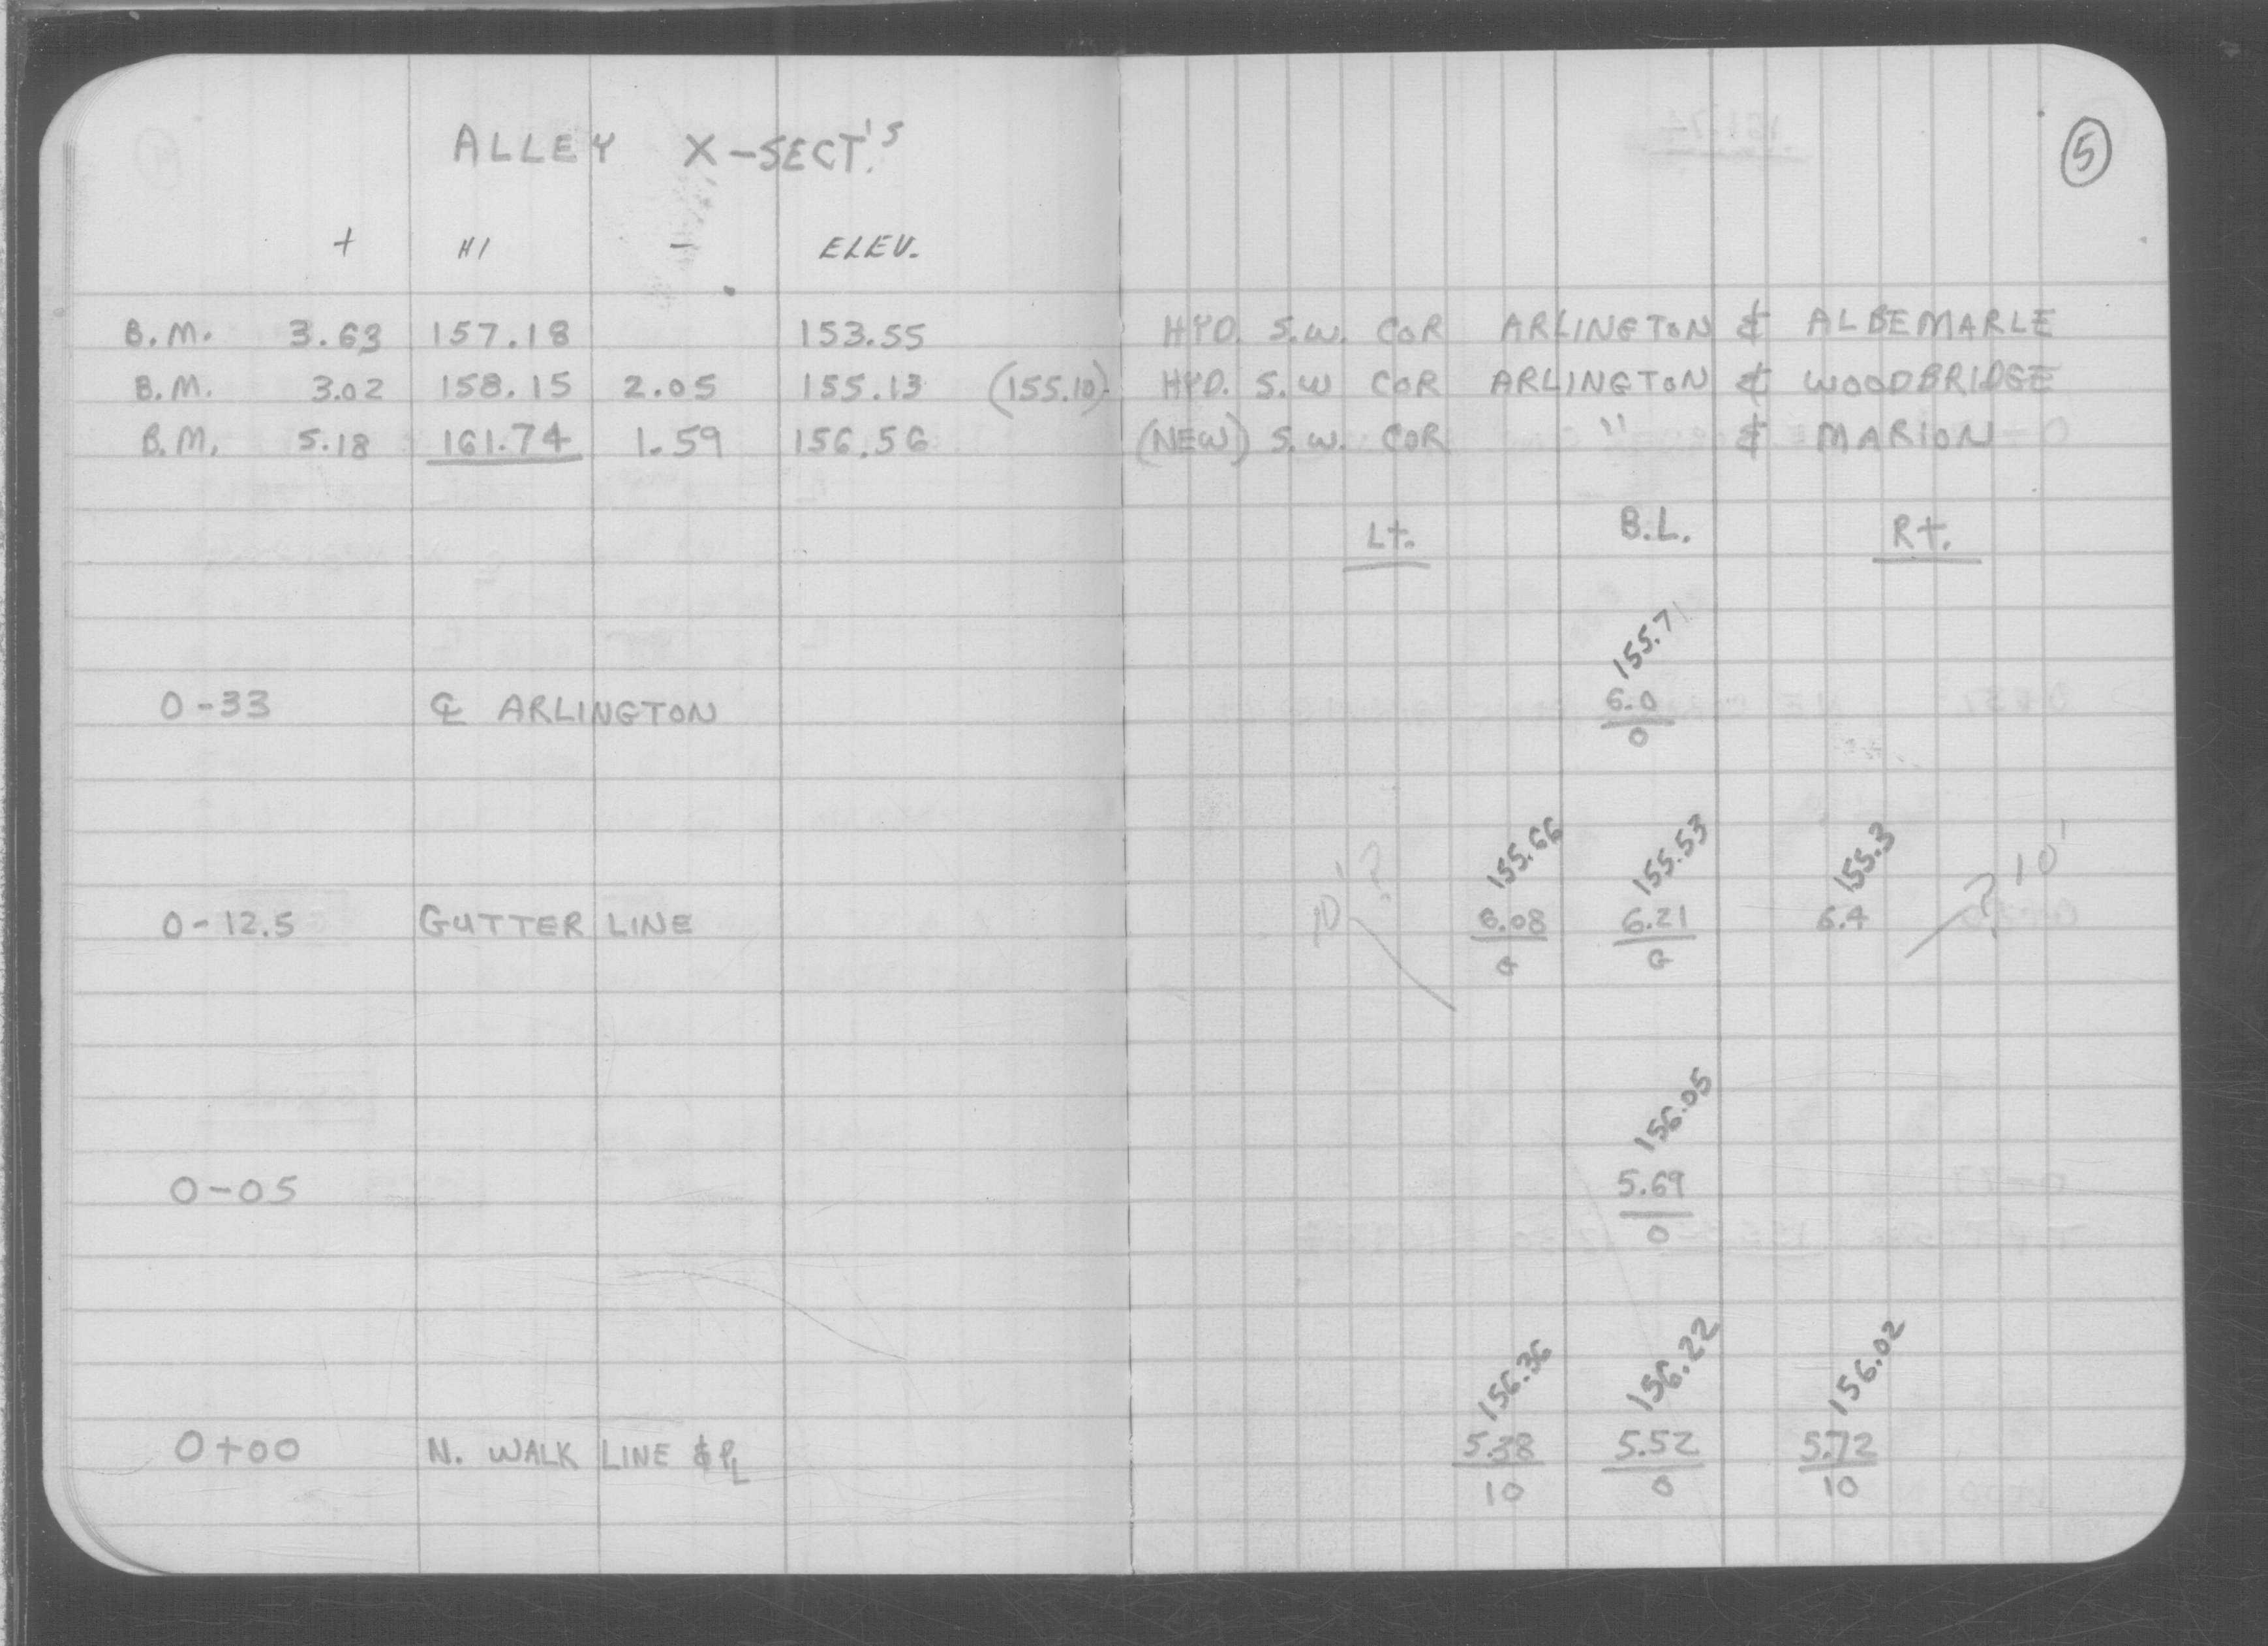 5
ALLEY X-SECT.'S
+ HI - ELEV.
B.M. 3.63 157.18 153.55 HYD. S.W. COR ARLINGTON & ALBEMARLE
B.M. 3.02 158.15 2.05 155.13 (155.10) HYD. S.W COR ARLINGTON & WOODBRIDGE
B.M. 5.18 161.74 1.59 156.56 (NEW) S.W. COR " & MARION
Lt. B.L. Rt.
155.71
0-33 ℄ ARLINGTON 6.0
0
155.66 155.53 155.3
10'? ? 10'
0-12.5 GUTTER LINE 6.08 6.21 6.4
G G
156.05
0-05 5.69
0
156.36 156.22 156.02
0+00 N. WALK LINE & PL 5.38 5.52 5.72
10 0 10